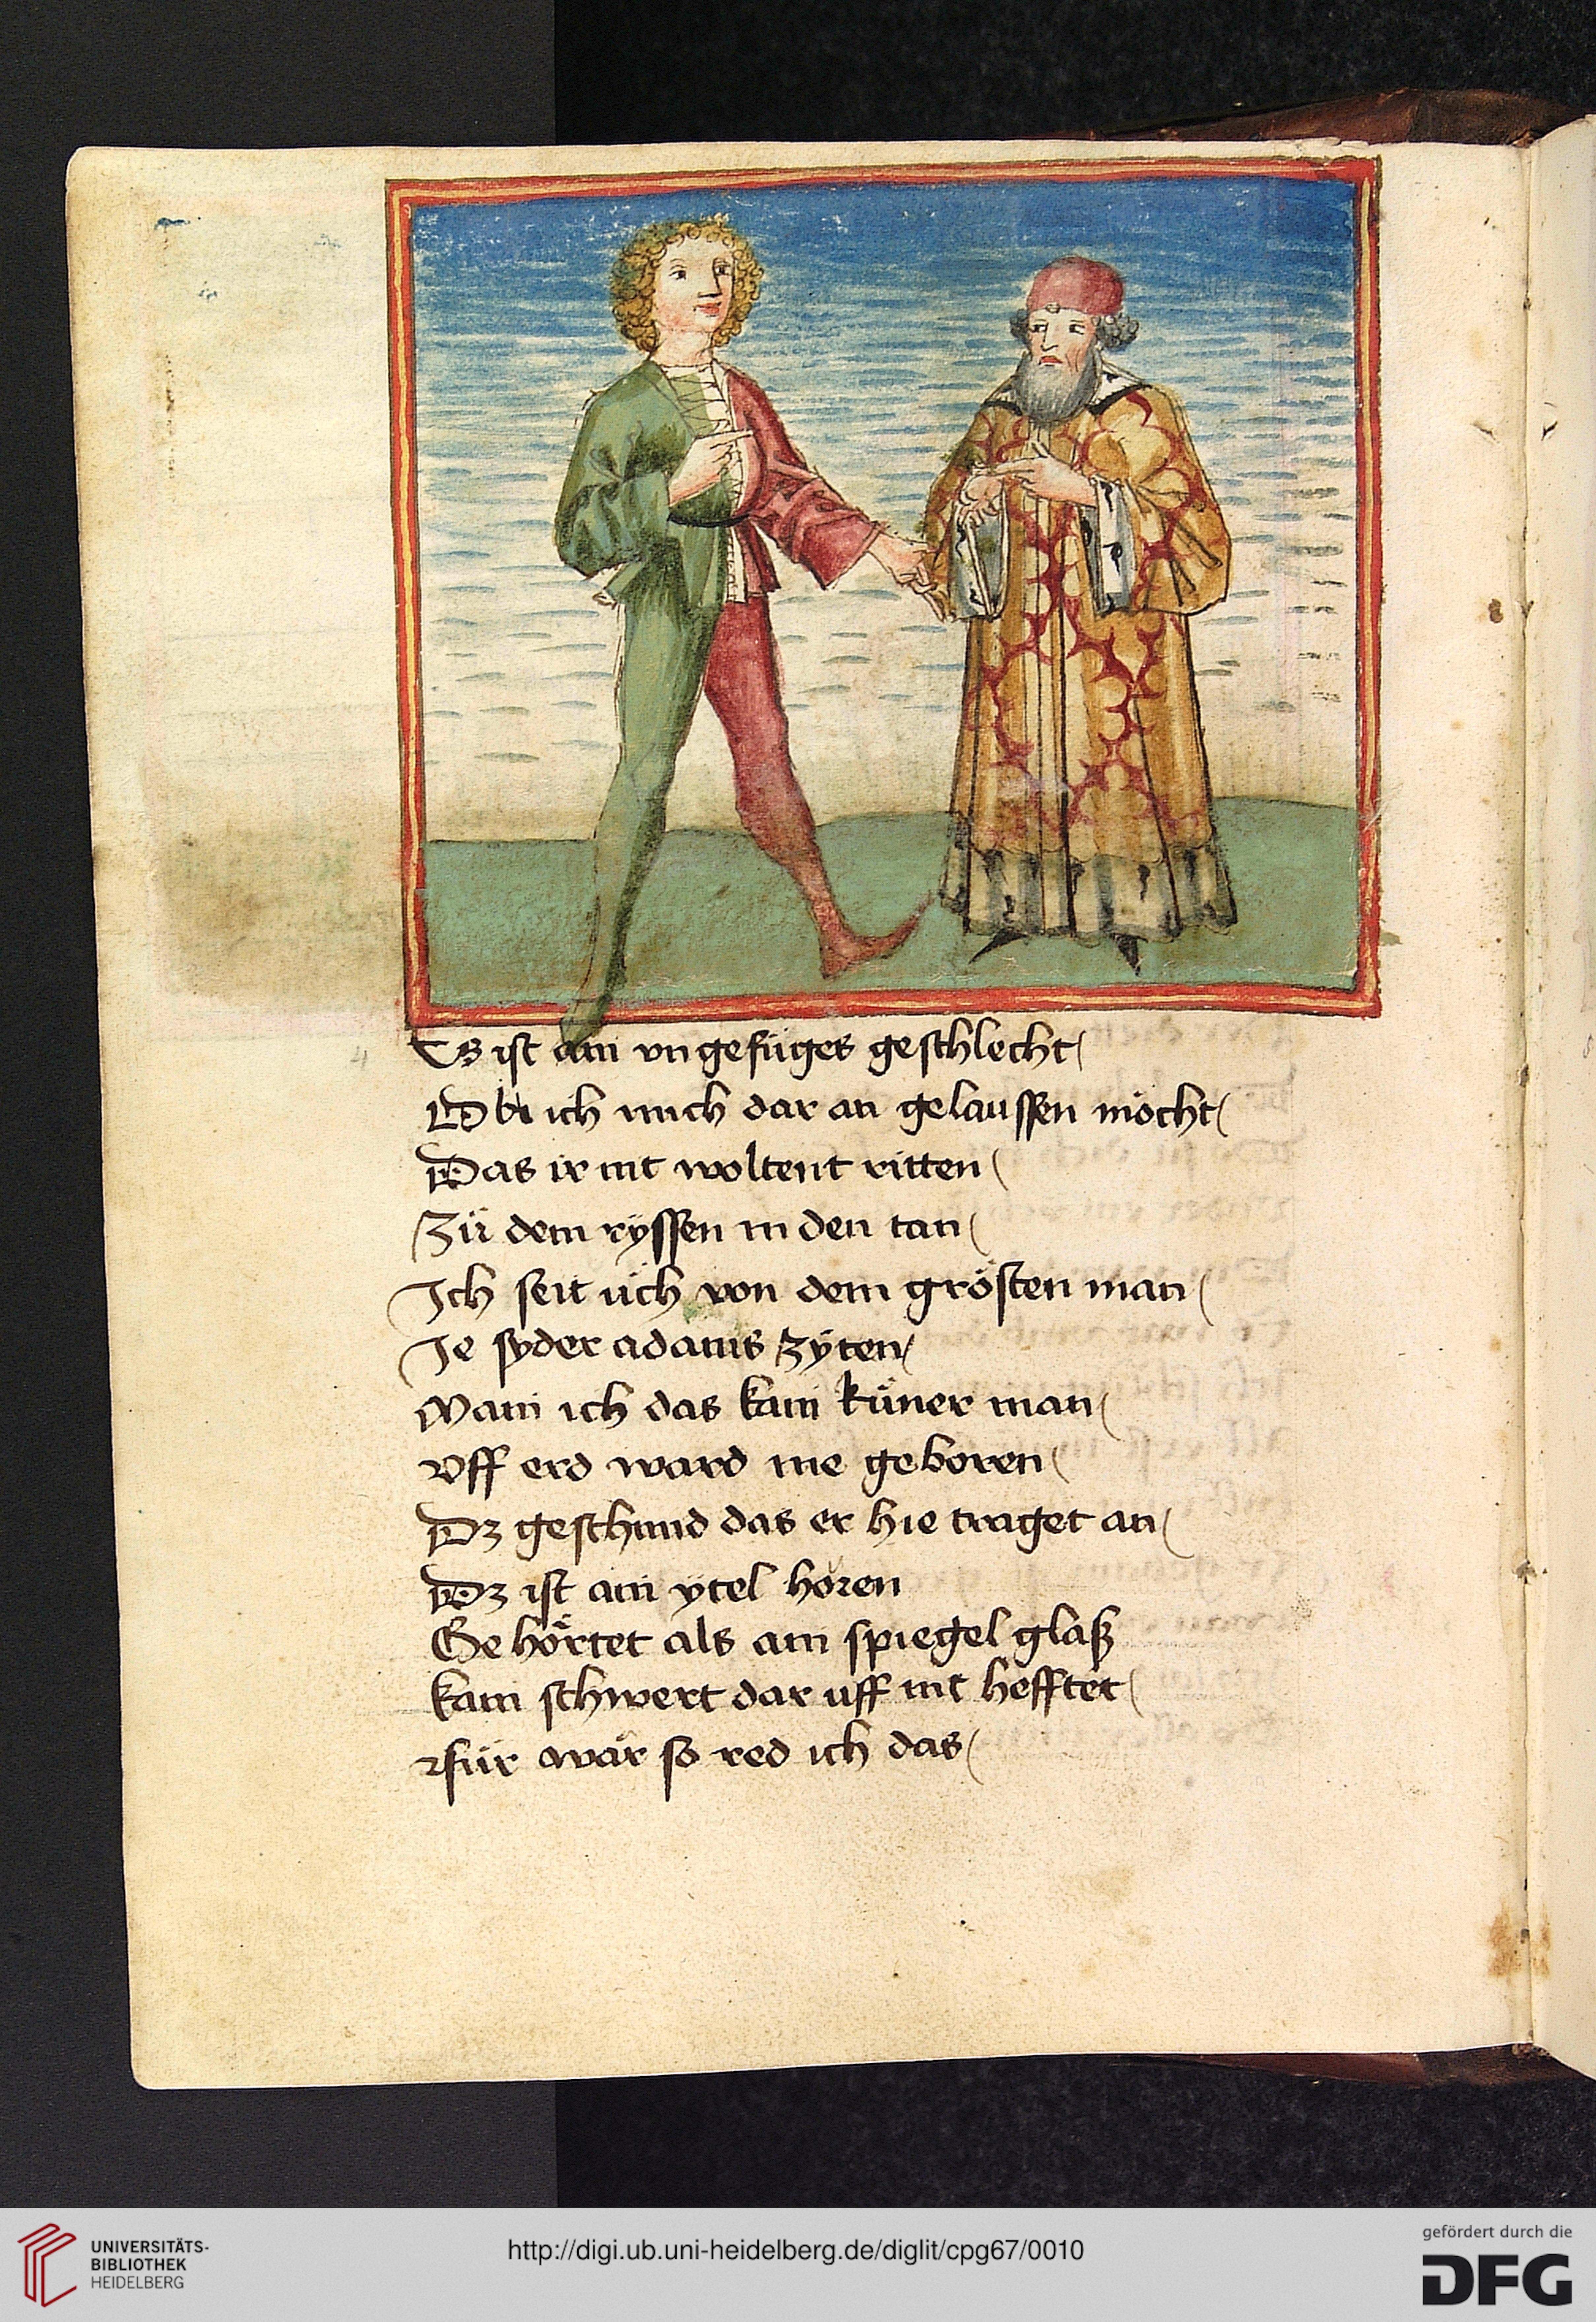 Es ist ain vngefüges geschlecht
Ob ich mich dar an gelaussen möcht
Das ir nit woltent ritten
Zü dem ryssen in den tan
Ich seit üch von dem grösten man
Je syder adams zÿten
Main ich das kain küner man
Vff erd ward nie geboren
Dz geschmid das er hie traget an
Dz ist ain ytel horen
Gehörtet als ain spiegel glaß
kain schwert dar uff nit hefftet
für wär so red ich das
UNIVERSITÄTS-
BIBLIOTHEK
HEIDELBERG
http://digi.ub.uni-heidelberg.de/diglit/cpg67/0010
gefördert durch die
DFG